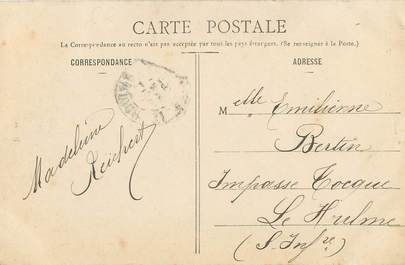 CARTE POSTALE
La Correspondance au recto n'est pas acceptée par tous les pays étrangers. (Se renseigner à la Poste.)
CORRESPONDANCE
ADRESSE
Madeleine
Reichert
Melle Emilienne
Bertin
Impasse Tocque
Le Hulme
(S. Infre)